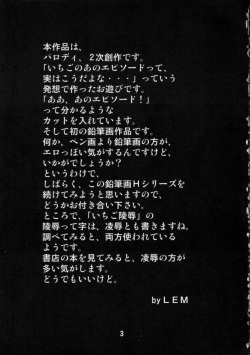 本作品は、
パロディ、2次創作です。
「いちごのあのエピソードって、
実はこうだよな・・・」っていう
発想で作ったお遊びです。
「ああ、あのエピソード！」
って分かるような
カットを入れています。
そして初の鉛筆画作品です。
何か、ペン画より鉛筆画の方が、
エロっぽい気がするんですけど、
いかがでしょうか？
というわけで、
しばらく、この鉛筆画Hシリーズを
続けてみようと思いますので、
どうかお付き合い下さい。
ところで、「いちご陵辱」の
陵辱って字は、凌辱とも書きますね。
調べてみると、両方使われている
ようです。
書店の本を見てみると、凌辱の方が
多い気がします。
どうでもいいけど。
by LEM
3